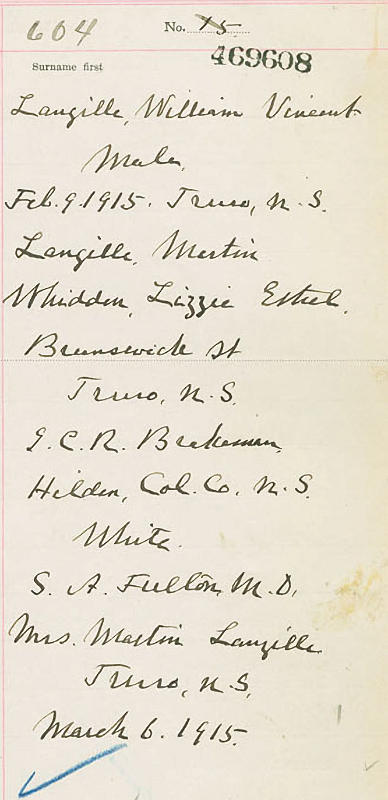 604 No. 15
469608
Surname first
Langille, William Vincent
Male.
Feb. 9. 1915. Truro, N. S.
Langille, Martin
Whidden, Lizzie Ethel.
Brunswick St
Truro, N. S.
I. C. R. Brakeman,
Hilden, Col. Co. N. S.
White.
S. A. Fulton, M. D.
Mrs. Martin Langille
Truro, N. S.
March 6. 1915.